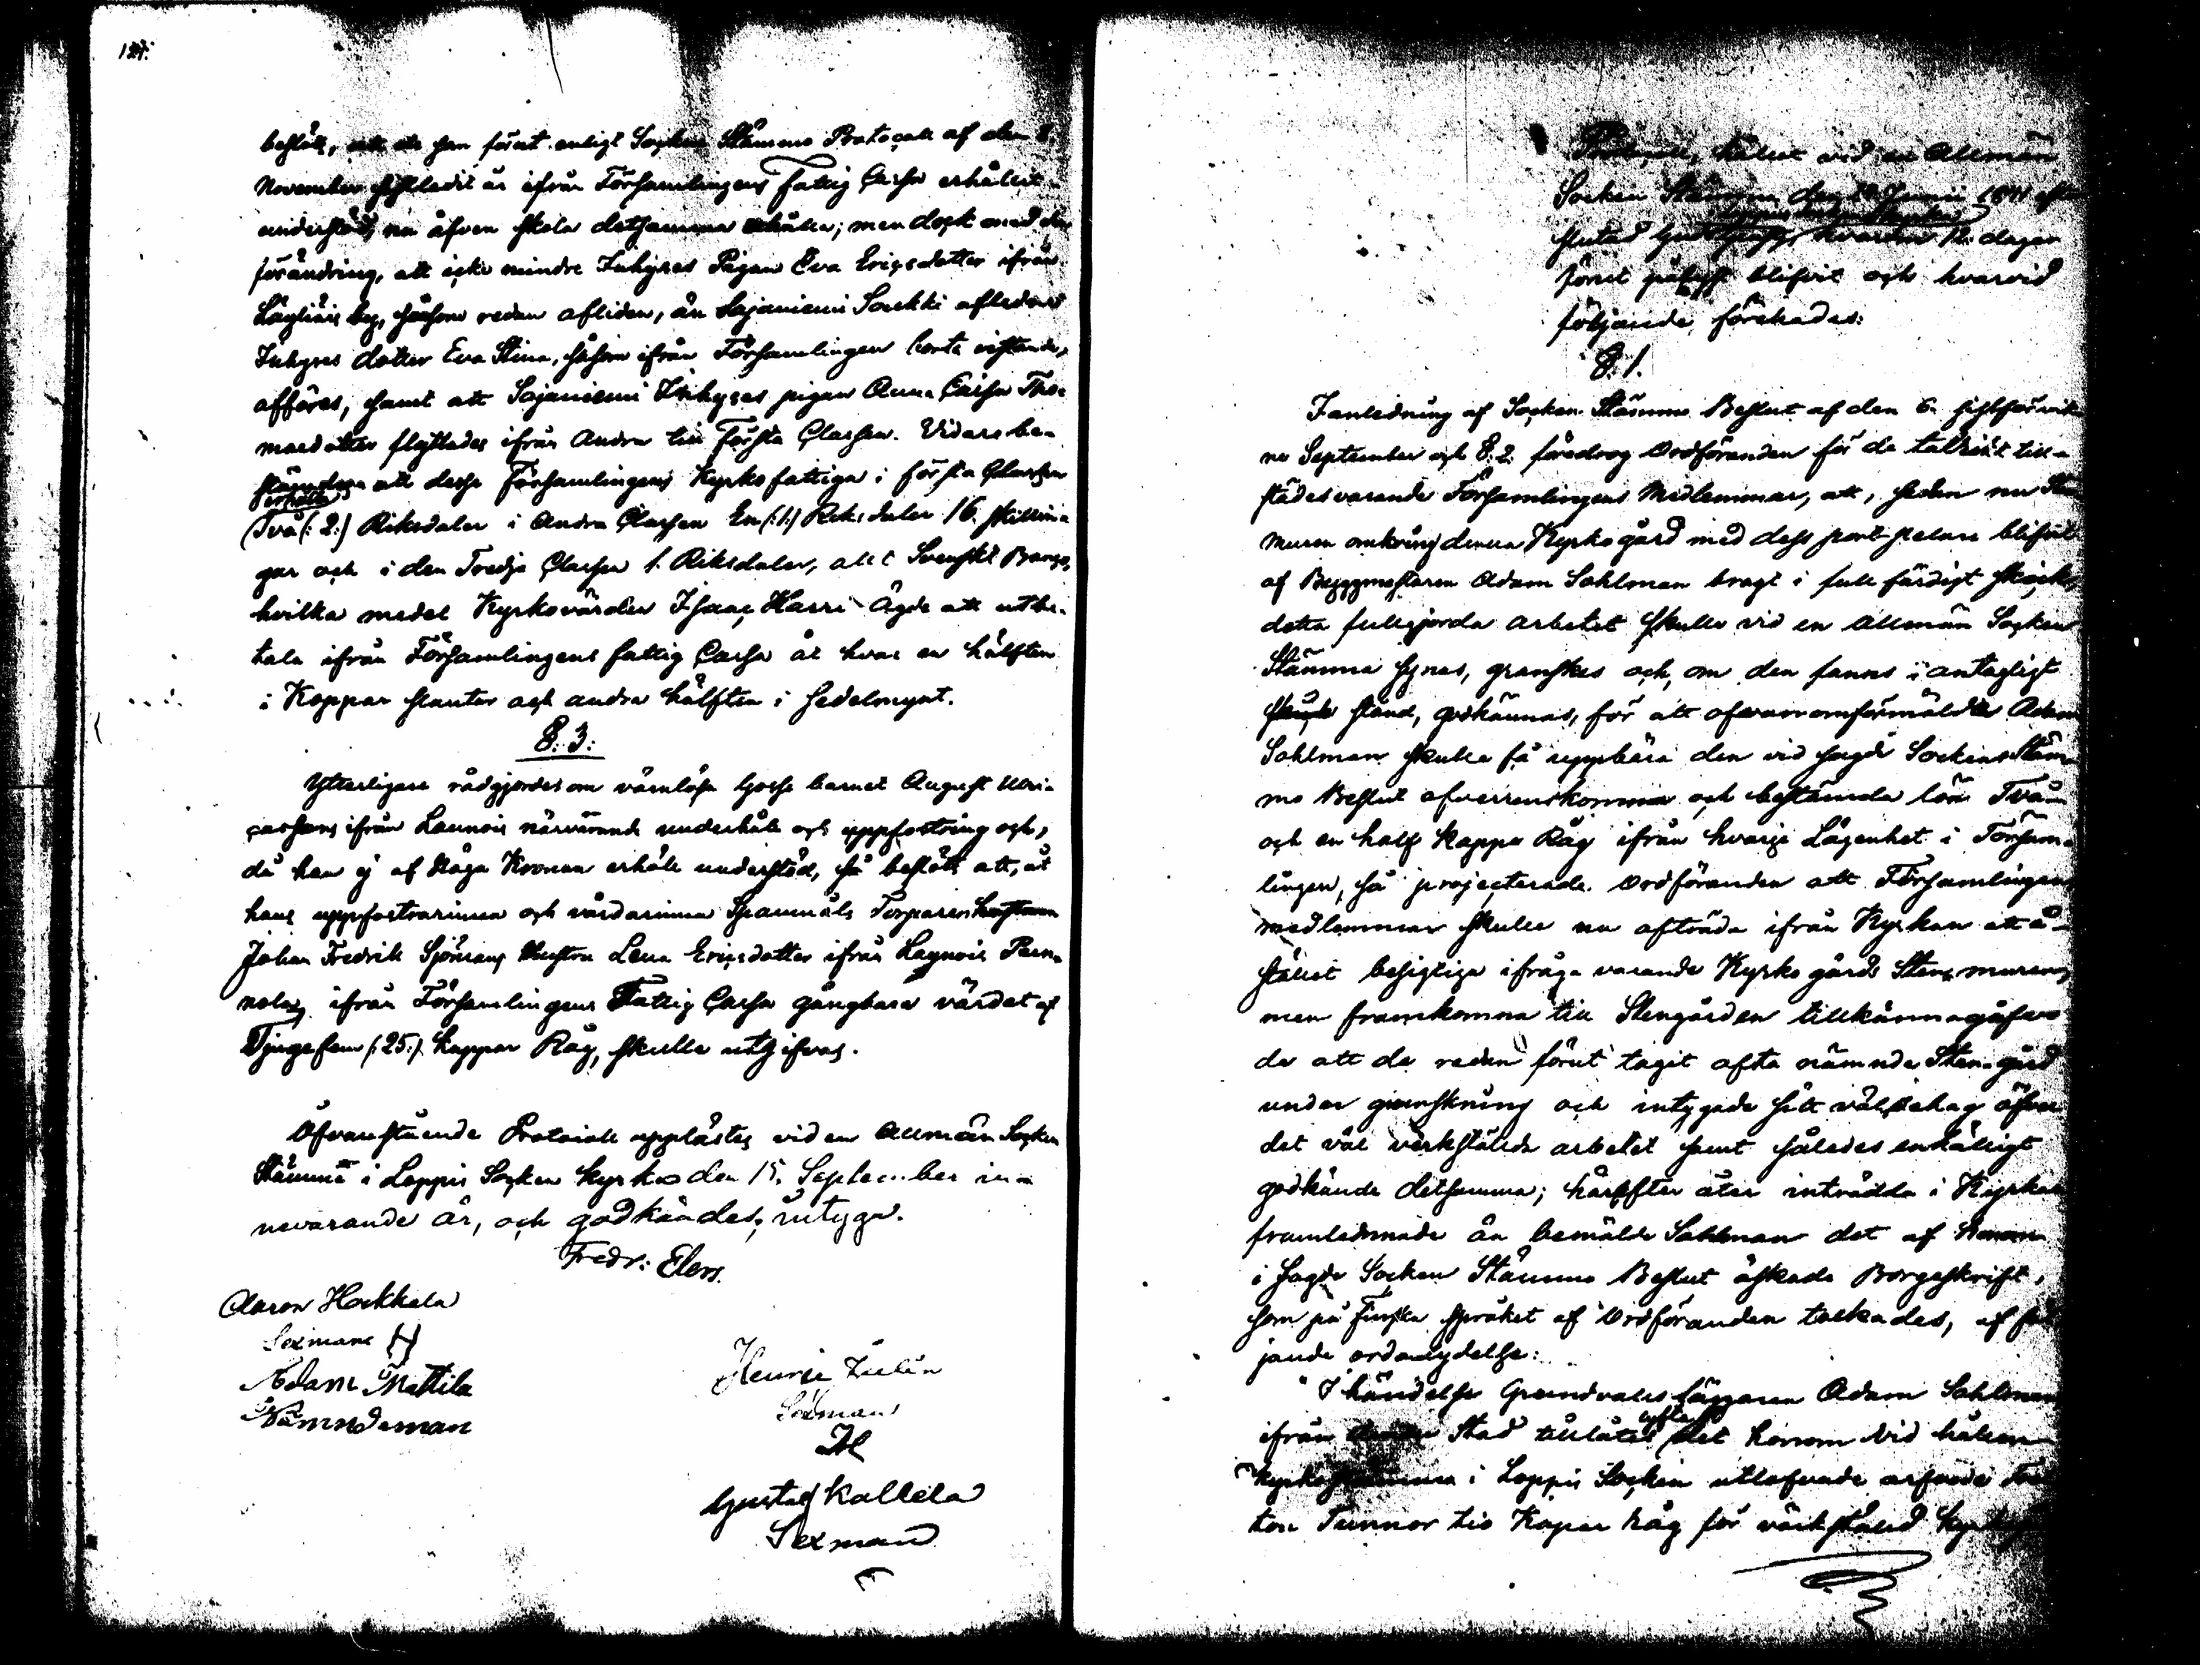 127.
beslöts, att de som förut enligt Socken Stämmo Protocoll af den 8.
November sistledit år ifrån Församlingens Fattig Cassa erhållit
understöd, nu äfven skola detsamma erhålla; men dock med den
förändring, att icke mindre Inhyses Pigan Eva Ericsdotter ifrån
Läyliäis by, såsom redan afliden, än Sajaniemi Soukki aflednes
Inhyses dotter Eva Stina, såsom ifrån Församlingen borta vistande,
afföres, samt att Sajaniemi Inhyses pigan Anna Caisa Tho-
masdotter flyttades ifrån Andra till Första Classen. Vidare be-
stämdes att dessa Församlingens Kyrkofattiga i första Classen
erhålla
Två (: 2:) Riksdaler i Andra Classen En (: 1:) Riksdaler 16. skillin-
gar och i den Tredje Classen 1. Riksdaler, allt Svenskt Banco,
hvilka medel Kyrkovärden Isaac Harri ägde att utbe-
tala ifrån Församlingens fattig Cassa åt hvar en hälften
i Koppar slantar och andra hälften i Sedelmynt.
§. 3:
Ytterligare rådgjordes om värnlösa Gosse barnet August Ulri-
cassons ifrån Launois närvarande underhåll och uppfostring och,
då han ej af Höga Kronan erhåll understöd, så beslöts att, åt
hans uppfostrarinna och vårdarinna Torparen
Johan Fredrik Sjömans Hustru Lena Ericsdotter ifrån Launois Pern-
nola, ifrån Församlingens Fattig Cassa gångbara värdet af
Tjugefem (: 25:) kappar Råg, skulle utgifvas.
Ofvanstående Protocoll upplästes vid en Allmän Socken
Stämma i Loppis Socken kyrka den 15. September in-
nevarande År, och godkändes; intyga.
Fredr: Elers.
Aaron Hokkala
Sexman
Adam Mattila
Nämndeman
Henric
Sexman
Gustaf Kallela
Sexman
Protocoll, hållit vid en Allmän
Socken Stämma den Junii 1841 efter
slutad Gudstjenst, hvarom 12. dagar
förut pålyst blifvit och hvarvid
följande förehades:
§. 1.
I anledning af Socken Stämmo Beslut af den 6. sistförvik-
ne September och §. 2. föredrog Ordföranden för de talrikt till-
städesvarande Församlingens Medlemmar, att, sedan nu Sten
muren omkring denna Kyrkogård med dess port pelare blifvit
af Byggmästaren Adam Sahlman bragt i full färdigt skick,
detta fullgjorda arbetet skulle vid en Allmän Socken
Stämma synas, granskas och, om den fanns i antagligt
stånd, godkännas, för att ofvanomförmälde Adam
Sahlman skulle få uppbära den vid sagde Sockens Stäm-
mo Beslut öfverenskomna och bestämda lön Två
och en half kappe Råg ifrån hvarje Lägenhet i Försam-
lingen, så projecterade Ordföranden att Församlingens
medlemmar skulle nu afträda ifrån Kyrkan att å
stället besigtiga ifråga varande Kyrko gårds Sten muren,
men framkomna till Stengården tillkännagåfvo
de att de redan förut tagit ofta nämnde Sten gård
under granskning och intygade sitt välbehag öfver
det väl verkställde arbetet samt således enhälligt
godkände detsamma; härefter åter inträdde i Kyrkan
framlemnade än bemälde Sahlman det af honom
i sagde Socken Stämmo Beslut äskade Borgeskrift,
som på Finska Språket af Ordföranden tolkades, af föl
jande ordalydelse:
"I händelse Grundvals läggaren Adam Sahlman
lyfta
ifrån Stad tillåtes det honom vid hållen
Kyrko stämma i Loppis Socken utlofvade arfvode
ton Tunnor tio Kapar Råg för värkställd